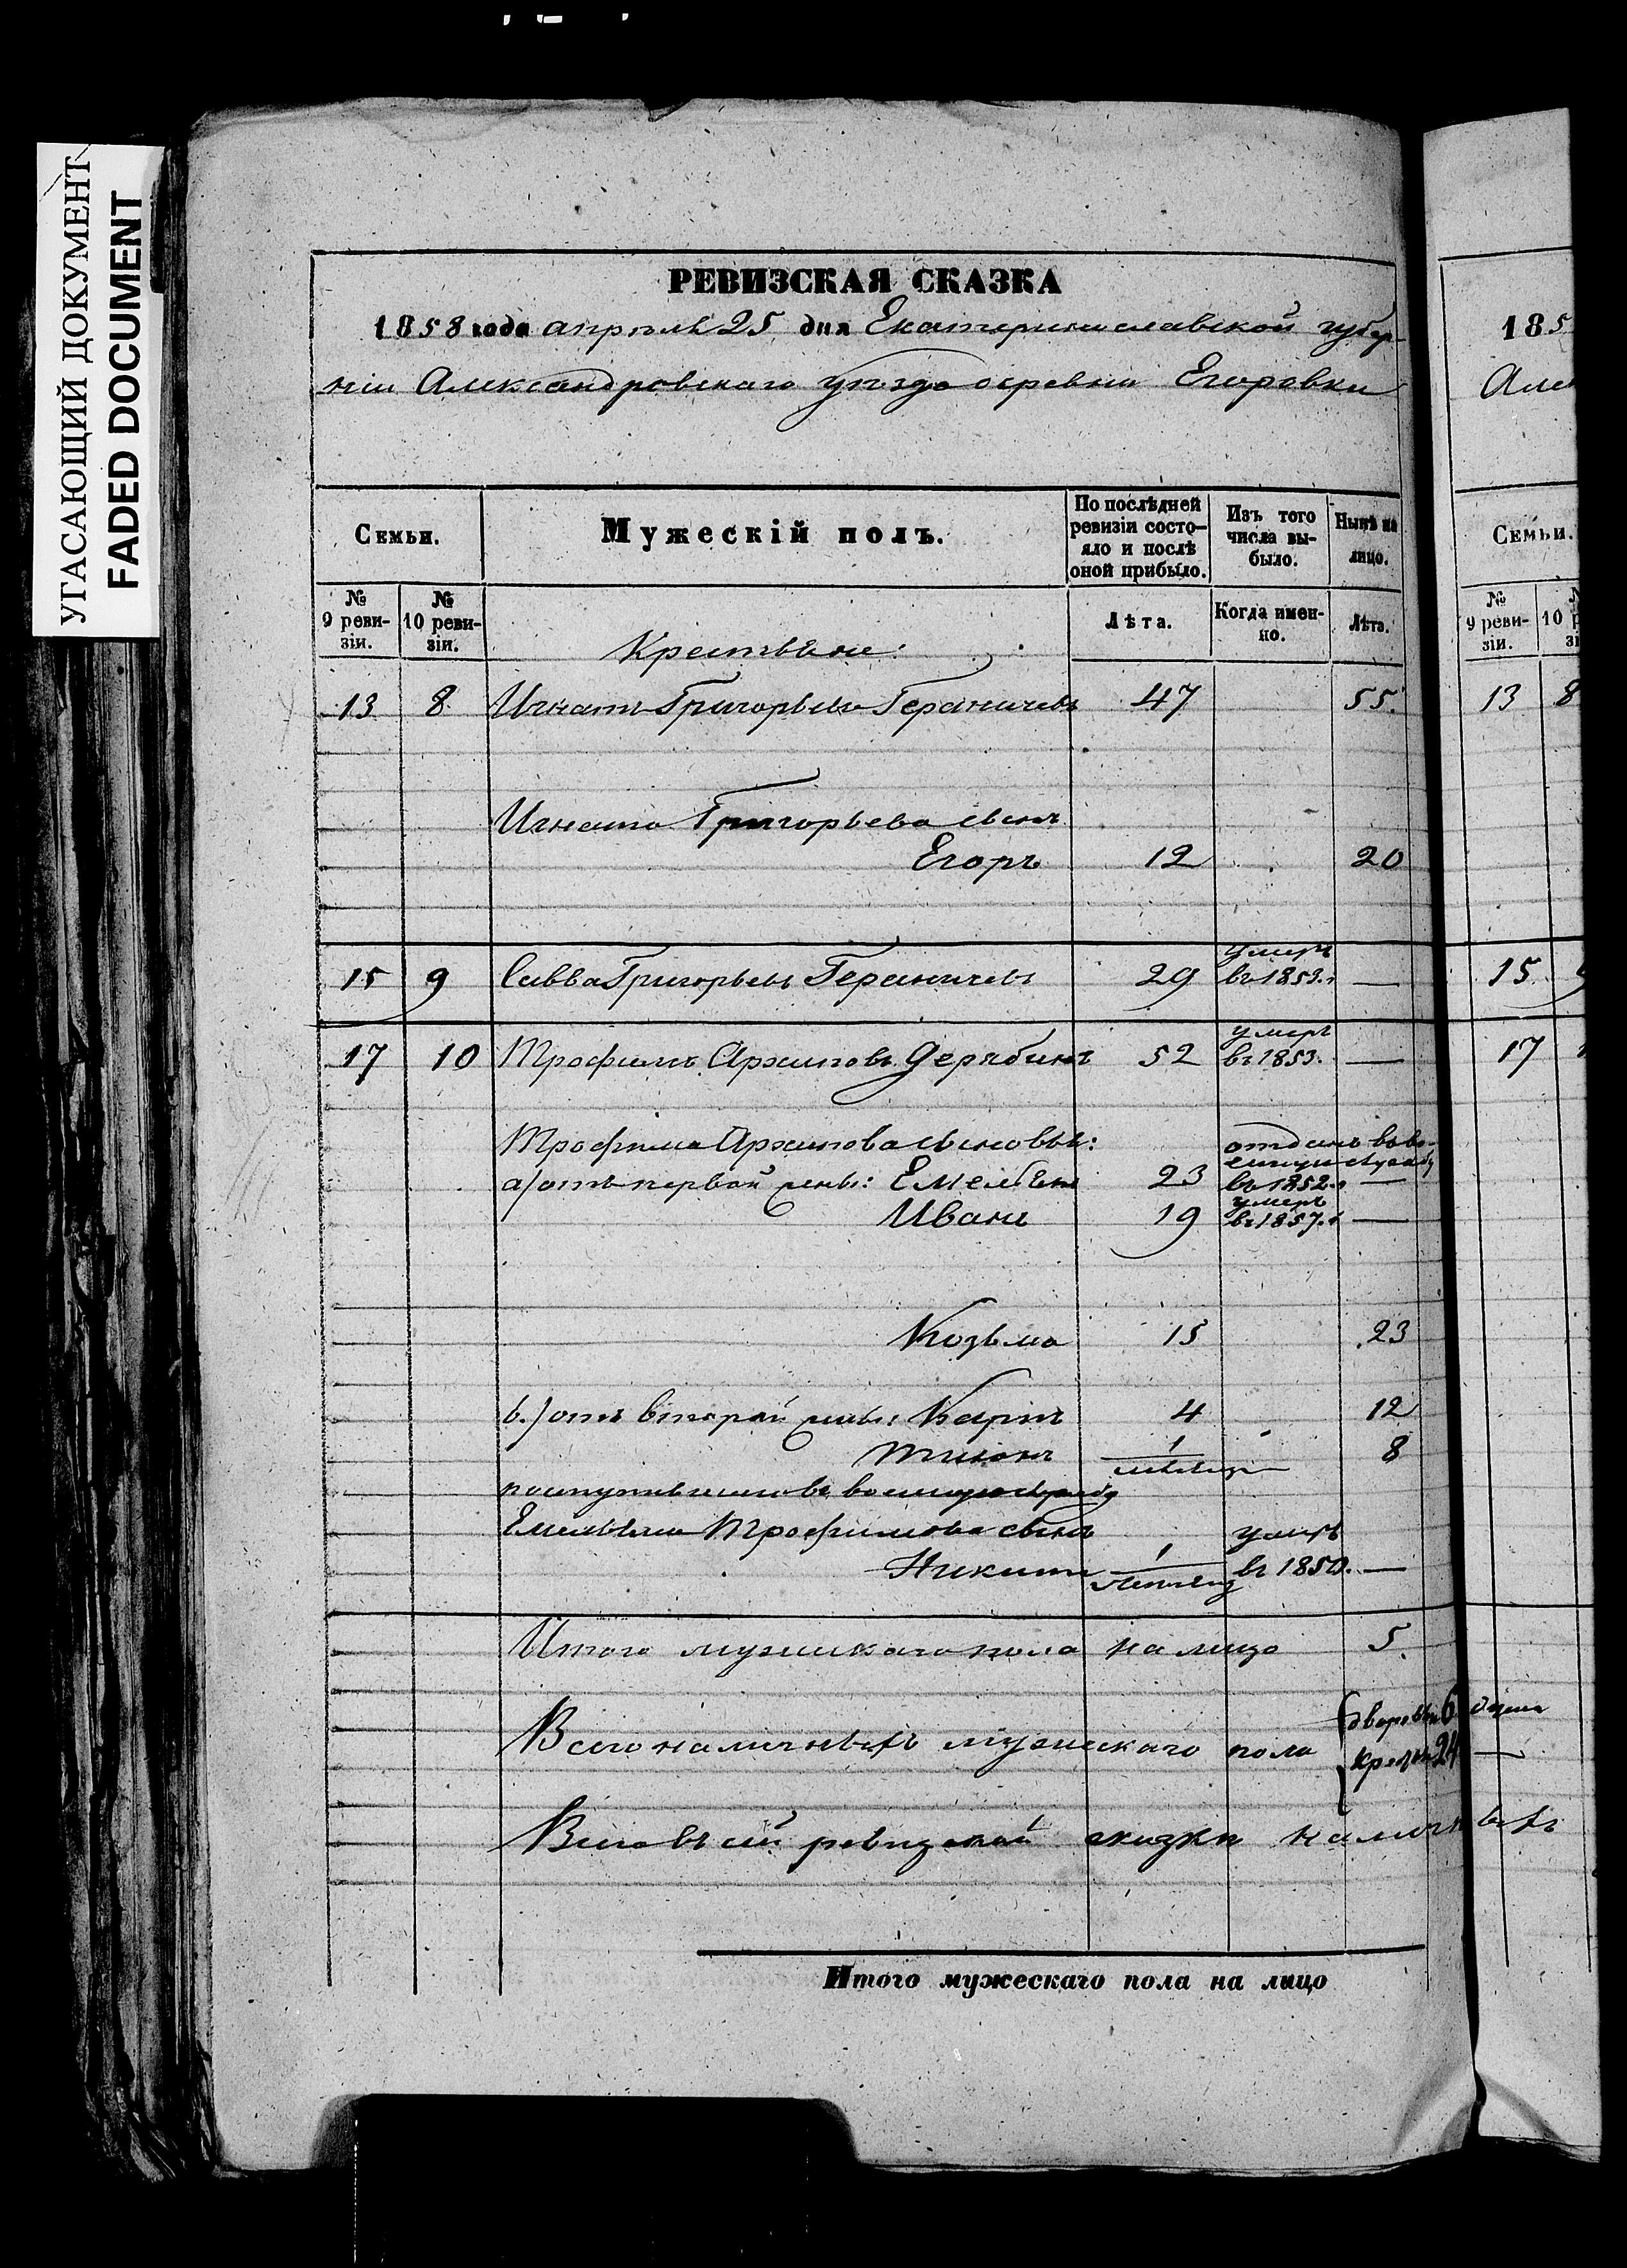 УГАСАЮЩИЙ ДОКУМЕНТ
FADED DOCUMENT
РЕВИЗСКАЯ СКАЗКА
1858 года апрѣля 25 дня Екатеринославской губер-
ніи Александровскаго уѣзда деревни Егоровки
Семьи.
Мужескій полъ.
По послѣдней ревизіи состо-яло и послѣ оной прибыло.
Изъ того числа вы-было.
Нынѣ на лицо.
№ 9 реви-зіи.
№ 10 реви-зіи.
Лѣта.
Когда имен-но.
Лѣта.
Крестьяне:
13 8 Игнатъ Григорьевъ Гераничевъ 47 55.
Игната Григорьева сынъ
Егоръ 12 20
15 9 Савва Григорьевъ Гераничевъ 29 умеръ въ 1853.г —
17 10 Трофимъ Архиповъ Дерябинъ 52 умеръ въ 1853. —
Трофима Архипова сыновья:
а) отъ первой жены: Емельянъ 23 отданъ въ во-енную службу въ 1852.г —
Иванъ 19 умеръ въ 1857.г —
Козьма 15 23
в.) отъ второй жены: Карпъ 4 12
Тихонъ 1 мѣсяцъ 8
поступившаго въ военную службу
Емельяна Трофимова сынъ
Никита 1 умеръ въ 1850. —
Итого мужескаго пола на лицо 5.
Всего наличныхъ мужескаго пола дворовыхъ 6 душъ
крестьян 24 —
Всего въ сей ревизской сказкѣ наличныхъ
Итого мужескаго пола на лицо
185
Але
Семьи.
№ 9 реви-зіи.
13 8
15
17